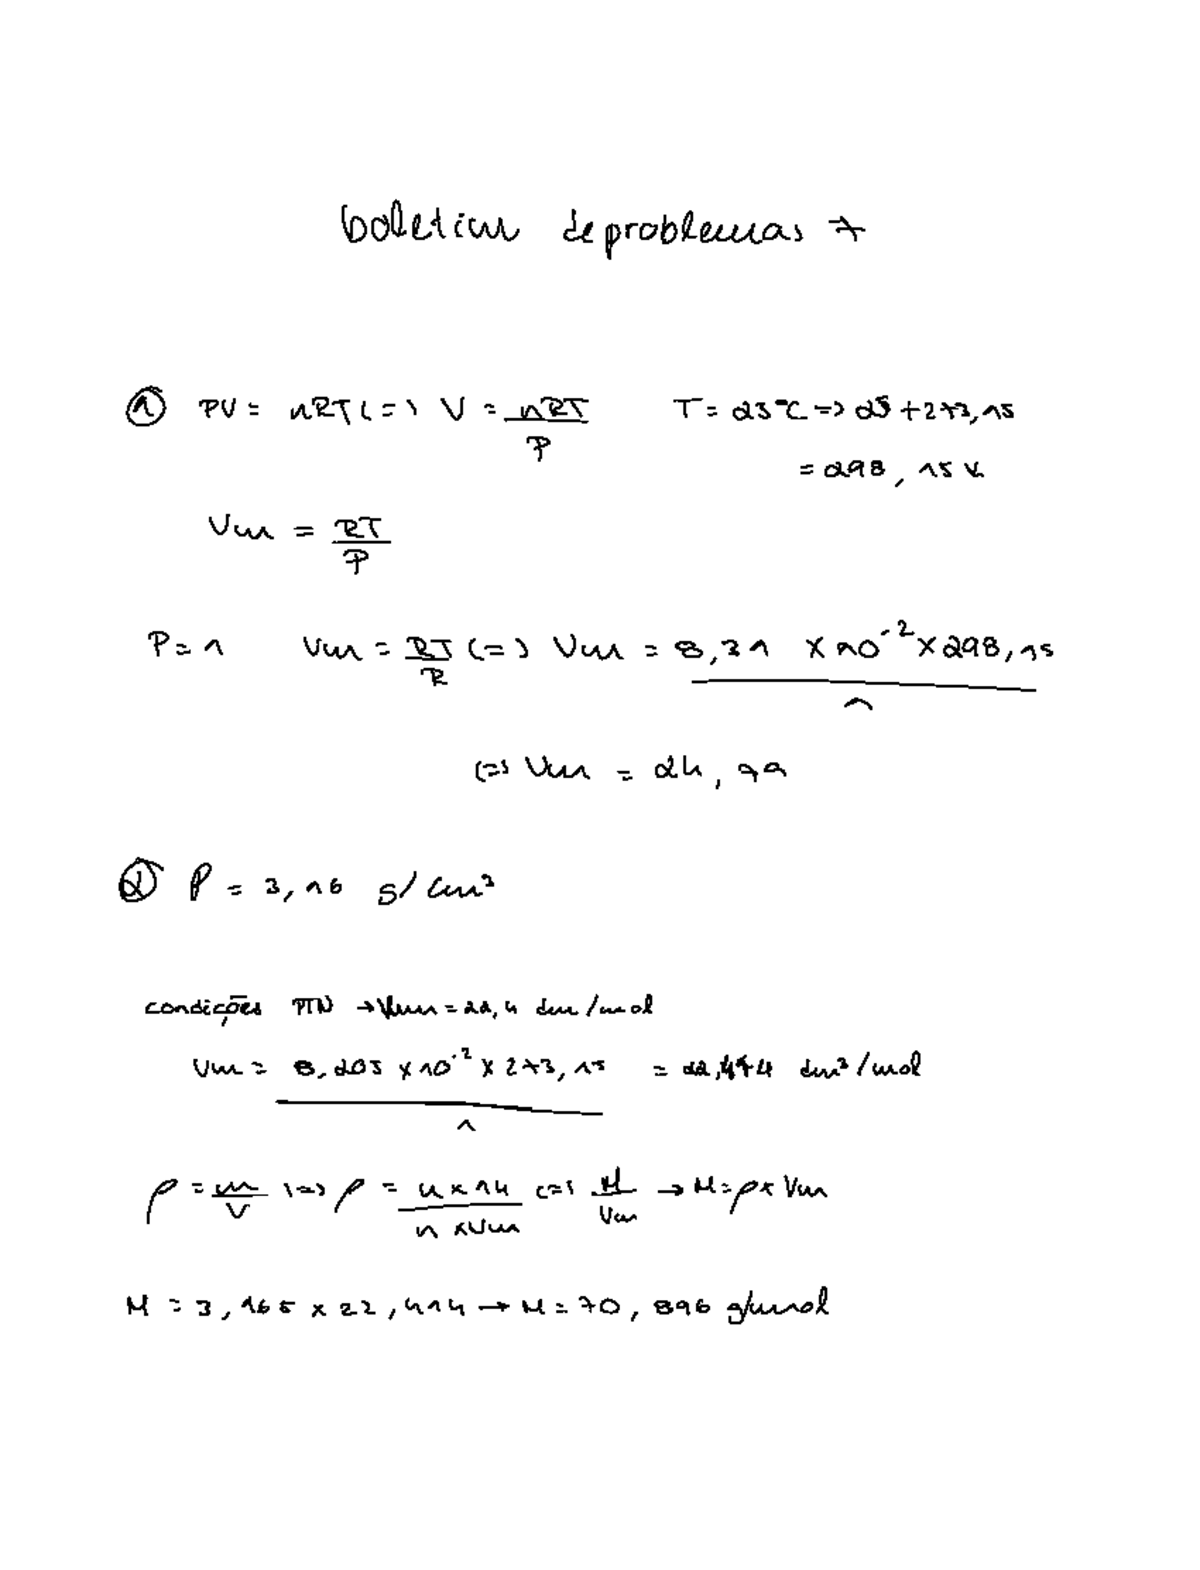 boletim de problemas 7
① PV = nRT (=) V = nRT/P T = 25°C => 25 + 273,15
= 298,15 K
Vm = RT/P
P = 1 Vm = RT/R (=) Vm = 8,31 x 10^-2 x 298,15 / 1
(=) Vm = 24,79
② ρ = 3,16 g/cm³
condições PTN → Vm = 22,4 dm/mol
Vm = 8,205 x 10^-2 x 273,15 / 1 = 22,414 dm³/mol
ρ = m/V (=) ρ = n x M / n x Vm (=) M/Vm → M = ρ x Vm
M = 3,165 x 22,414 → M = 70,896 g/mol